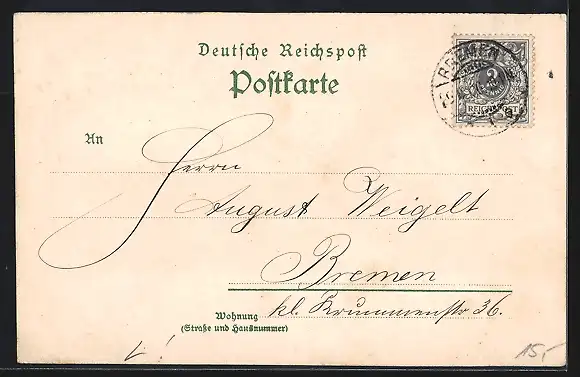 Deutsche Reichspost
Postkarte
BREMEN
3
REICHSPOST
An
Herrn
August Weigelt
Bremen
kl. Krummenstr 36.
Wohnung
(Straße und Hausnummer)
15,-